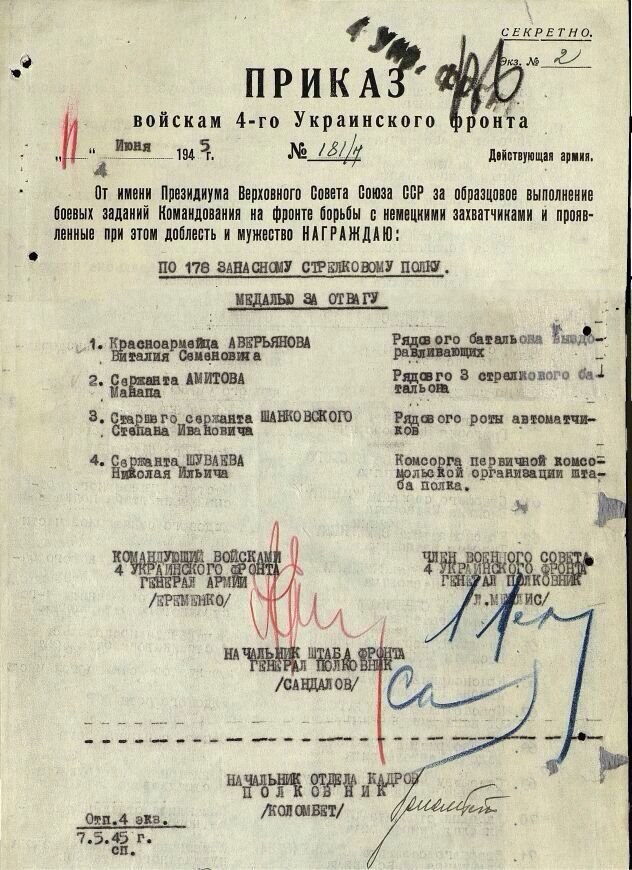 4 Укр. фронт
СЕКРЕТНО.
Экз. № 2
ПРИКАЗ
войскам 4-го Украинского фронта
„11“ Июня 1945 г. № 181/н Действующая армия.
От имени Президиума Верховного Совета Союза ССР за образцовое выполнение
боевых заданий Командования на фронте борьбы с немецкими захватчиками и прояв-
ленные при этом доблесть и мужество НАГРАЖДАЮ:
ПО 178 ЗАПАСНОМУ СТРЕЛКОВОМУ ПОЛКУ.
МЕДАЛЬЮ ЗА ОТВАГУ
1. Красноармейца АВЕРЬЯНОВА Рядового батальона выздо-
Виталия Семеновича равливающих
2. Сержанта АМИТОВА Рядовго 3 стрелкового ба-
Манапа тальона
3. Старшего сержанта ШАНКОВСКОГО Рядового роты автоматчи-
Степана Ивановича ков
4. Сержанта ШУВАЕВА Комсорга первичной комсо-
Николая Ильича мольской организации шта-
ба полка.
КОМАНДУЮЩИЙ ВОЙСКАМИ ЧЛЕН ВОЕННОГО СОВЕТА
4 УКРАИНСКОГО ФРОНТА 4 УКРАИНСКОГО ФРОНТА
ГЕНЕРАЛ АРМИИ ГЕНЕРАЛ ПОЛКОВНИК
/ЕРЕМЕНКО/ /Л.МЕХЛИС/
НАЧАЛЬНИК ШТАБА ФРОНТА
ГЕНЕРАЛ ПОЛКОВНИК
/САНДАЛОВ/
НАЧАЛЬНИК ОТДЕЛА КАДРОВ
ПОЛКОВНИК
/КОЛОМБЕТ/
Отп.4 экв.
7.5.45 г.
сп.